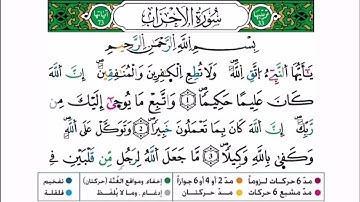 سُورَةُ الْأَحْزَابِ
بِسْمِ اللَّهِ الرَّحْمَٰنِ الرَّحِيمِ
يَٰأَيُّهَا النَّبِيءُ اتَّقِ اللَّهَ وَلَا تُطِعِ الْكَٰفِرِينَ وَالْمُنَٰفِقِينَ إِنَّ اللَّهَ
كَانَ عَلِيمًا حَكِيمًا ١ وَاتَّبِعْ مَا يُوحَىٰ إِلَيْكَ مِن
رَّبِّكَ إِنَّ اللَّهَ كَانَ بِمَا تَعْمَلُونَ خَبِيرًا ٢ وَتَوَكَّلْ عَلَى اللَّهِ
وَكَفَىٰ بِاللَّهِ وَكِيلًا ٣ مَّا جَعَلَ اللَّهُ لِرَجُلٍ مِّن قَلْبَيْنِ فِي
مدّ 6 حركات لزوماً مدّ 2 أو 4 أو 6 جوازاً إخفاء، ومواقع الغُنَّة (حركتان) تفخيم
مدّ مشبع 6 حركات مدّ حركتان إدغام، وما لا يُلفَظ قلقلة